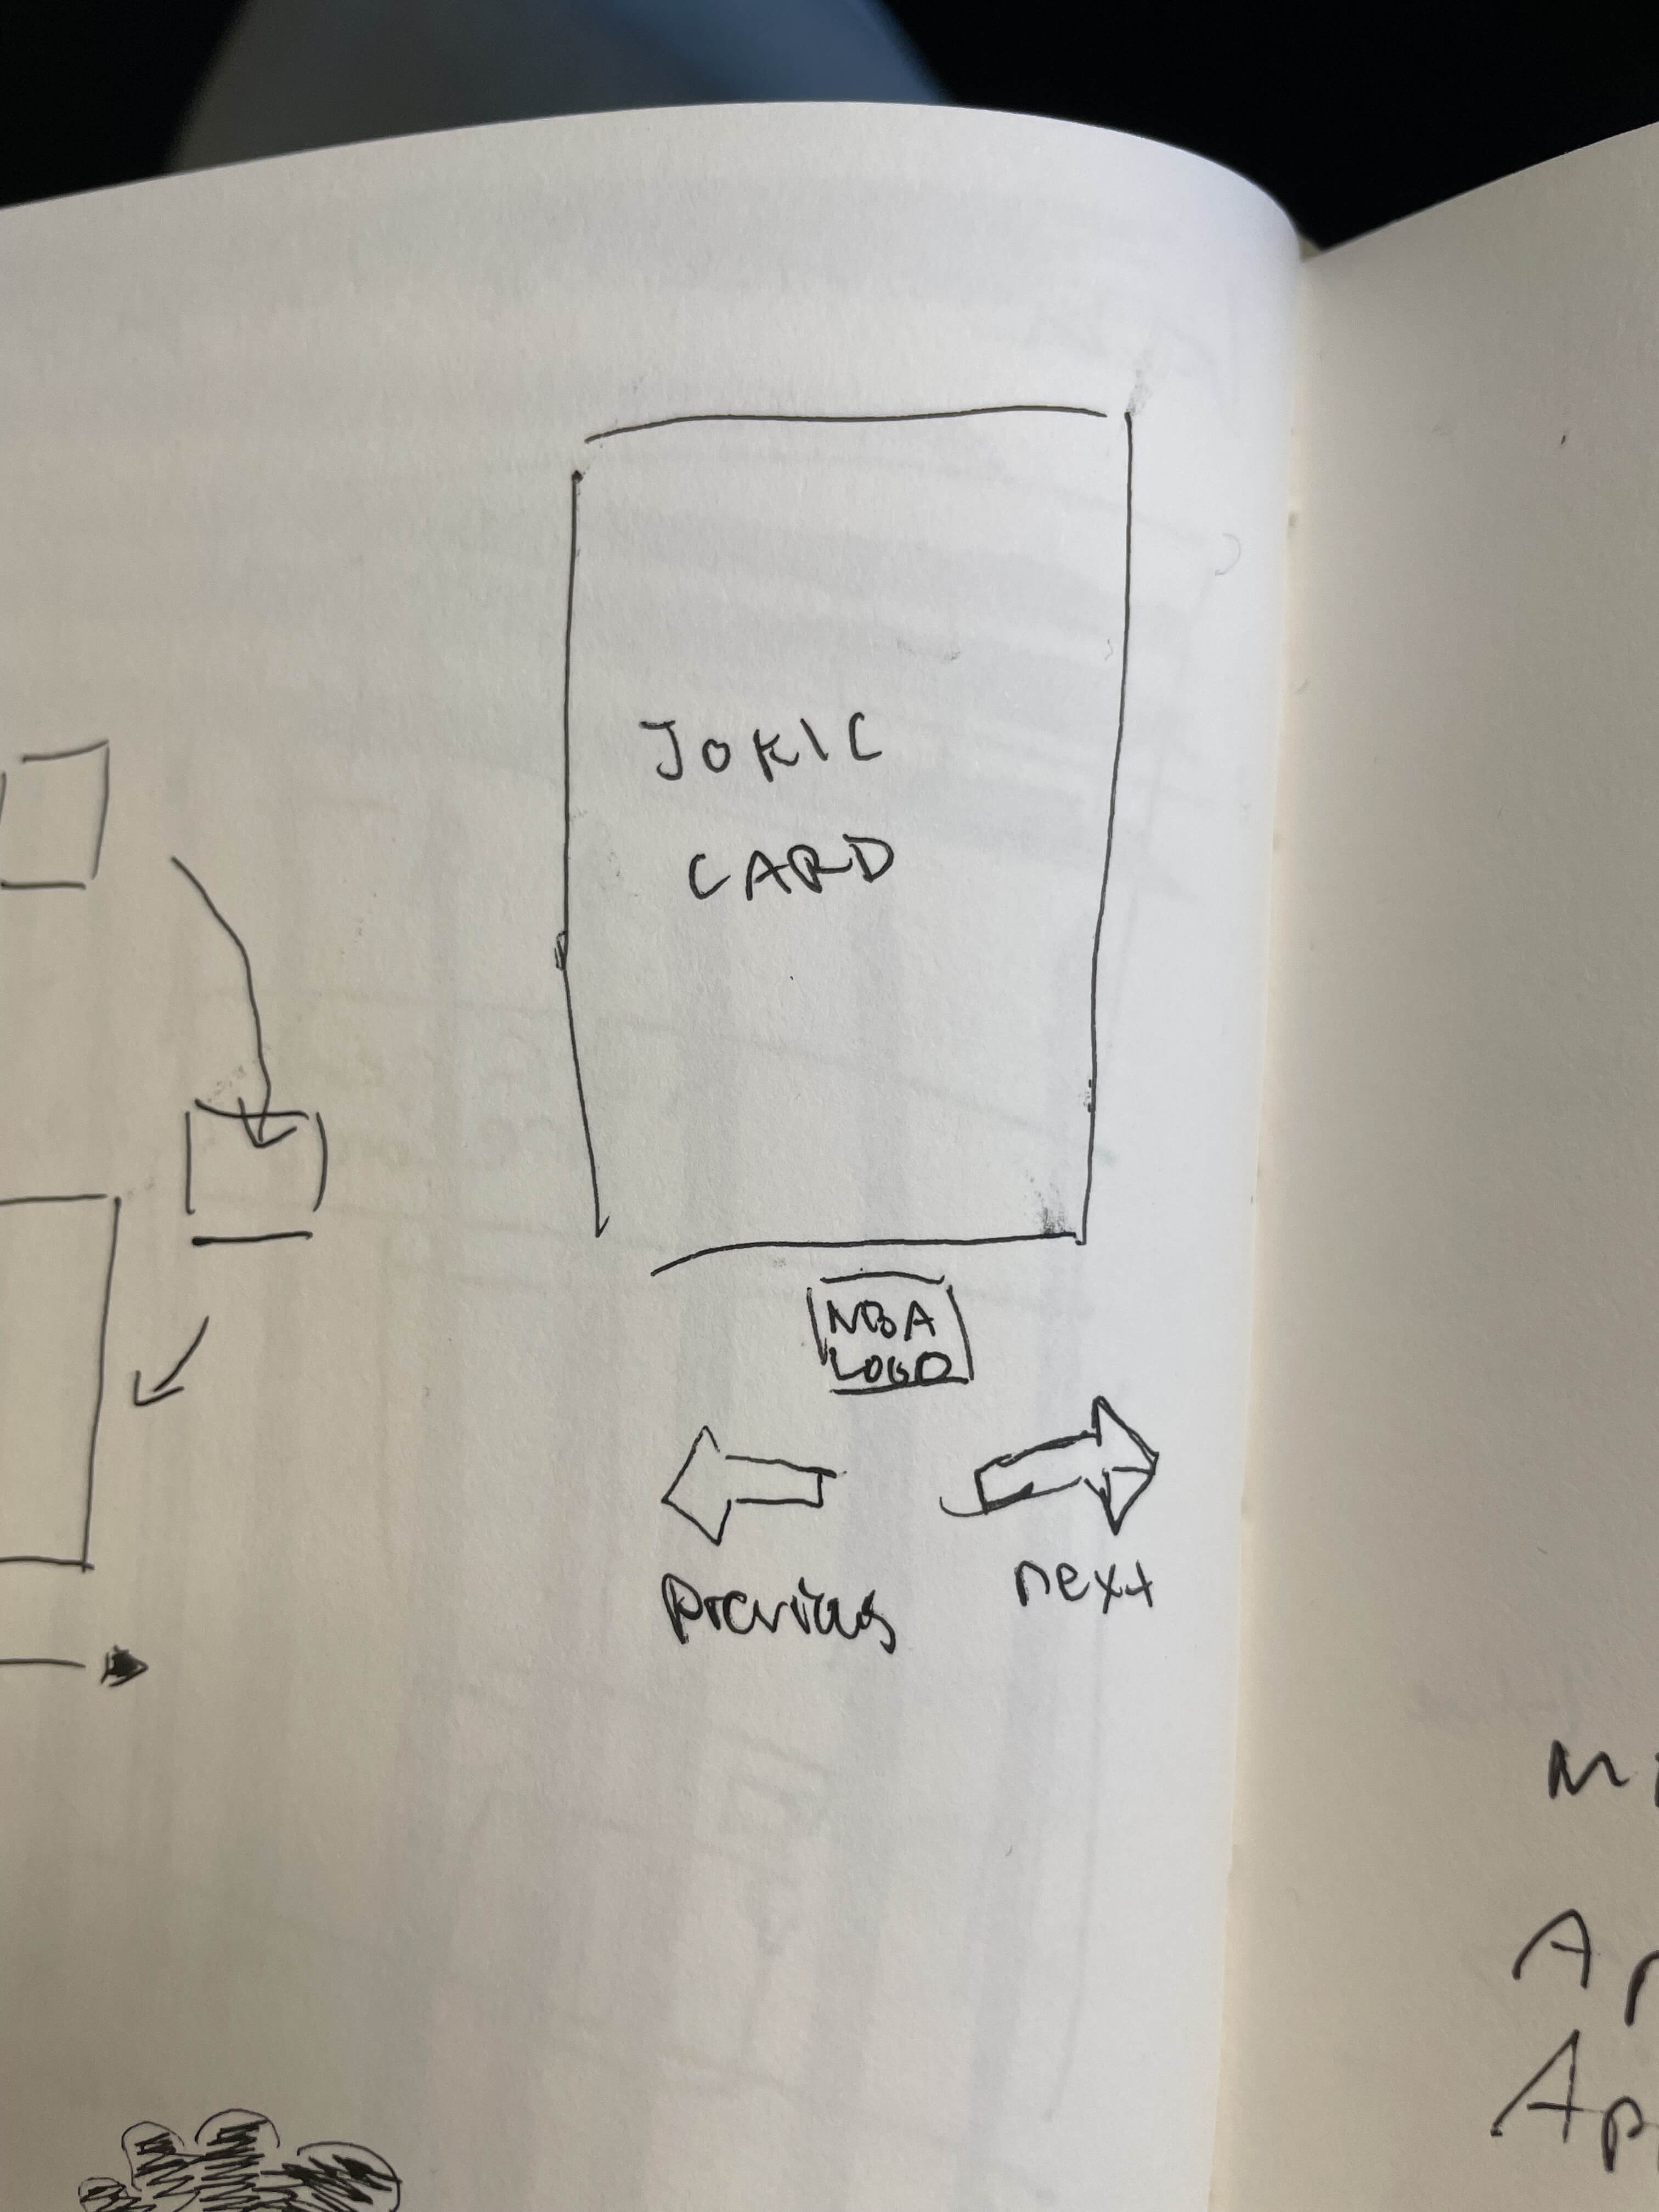 JOKIC
CARD
NBA
LOGO
Previous
next